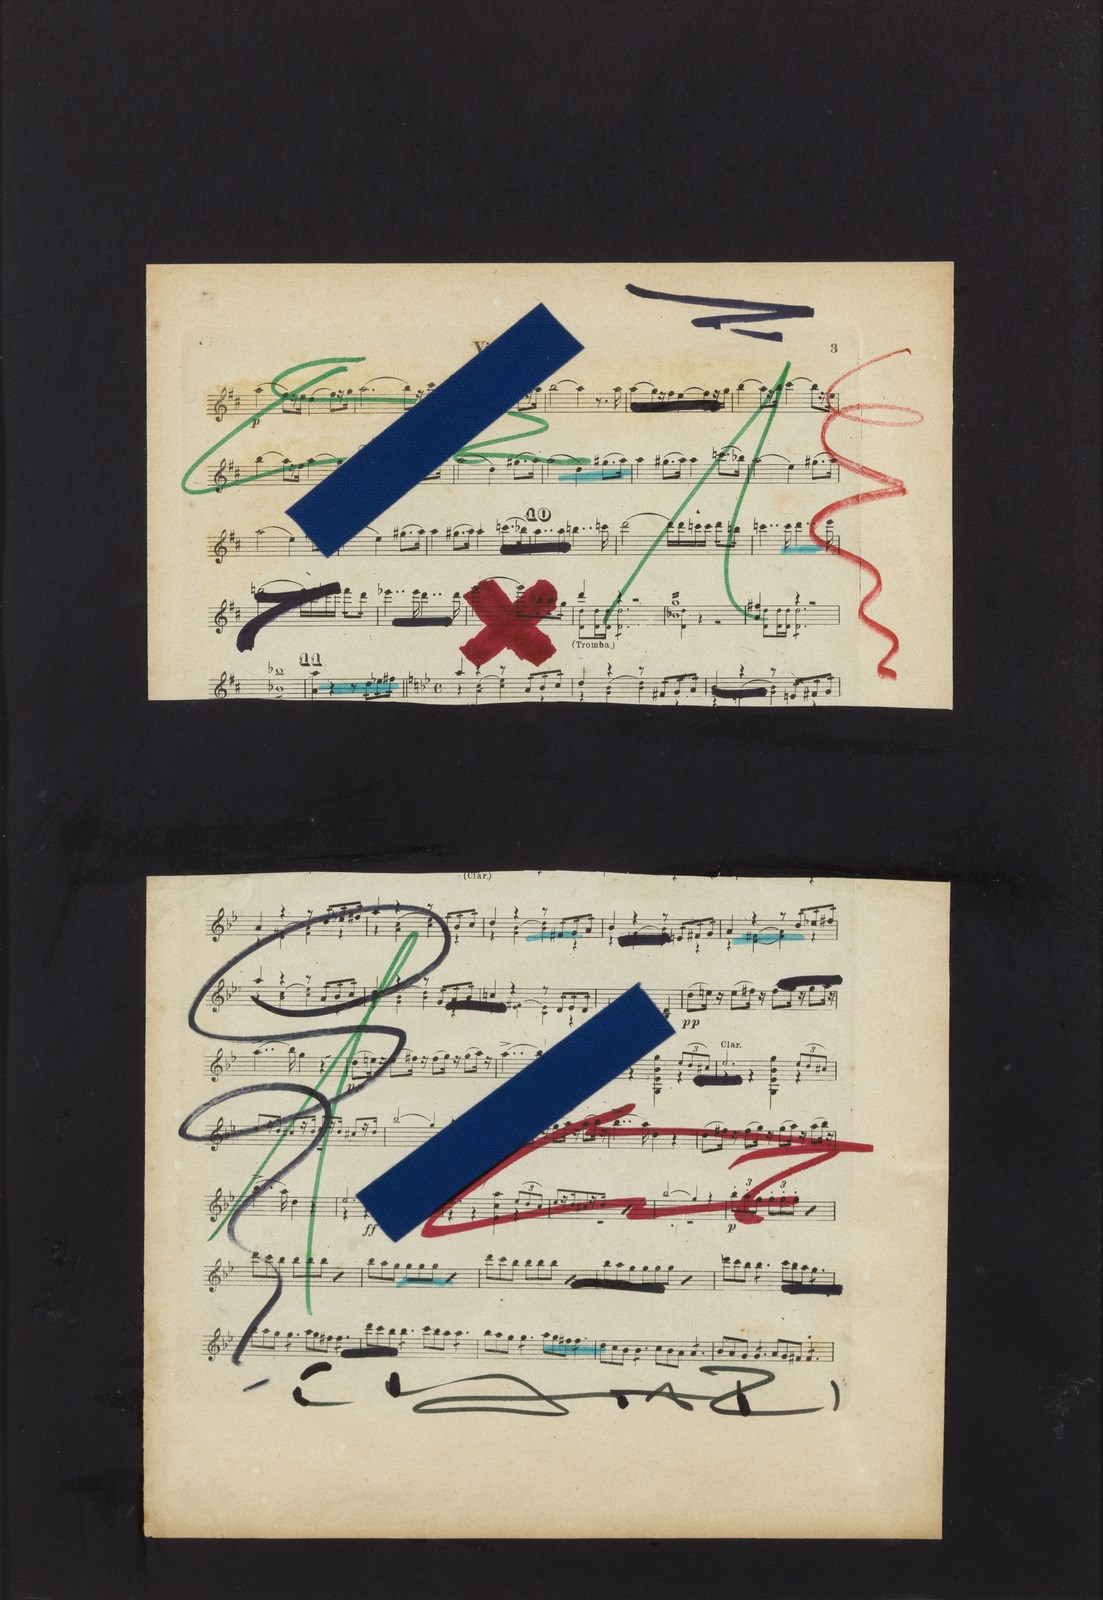 3
p
10
(Tromba.)
11
(Clar.)
pp
Clar.
3 3
3
ff
3 3
p